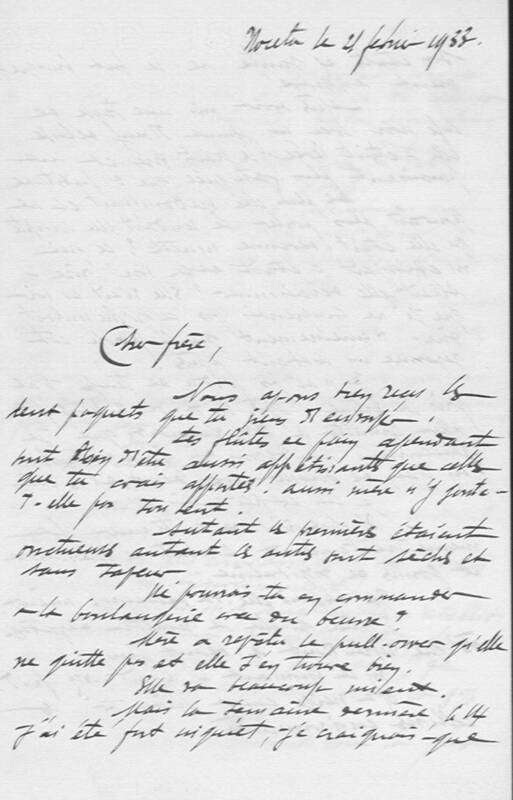 le 21 février 1933.
Cher frère,
Nous avons bien reçu les
deux paquets que tu viens d'envoyer.
Les flûtes de pain cependant
sont loin d'être aussi appétissantes que celles
que tu avais apportées. aussi mère n'y goûta-
t-elle pas souvent.
Autant les premières étaient
onctueuses autant les autres sont sèches et
sans saveur
Ne pourrais tu en commander
à la boulangerie avec du beurre ?
Mère a revêtu le pull-over qu'elle
ne quitte pas et elle s'en trouve bien.
Elle va beaucoup mieux.
Mais la semaine dernière, le 14
j'ai été fort inquiet, je craignais que